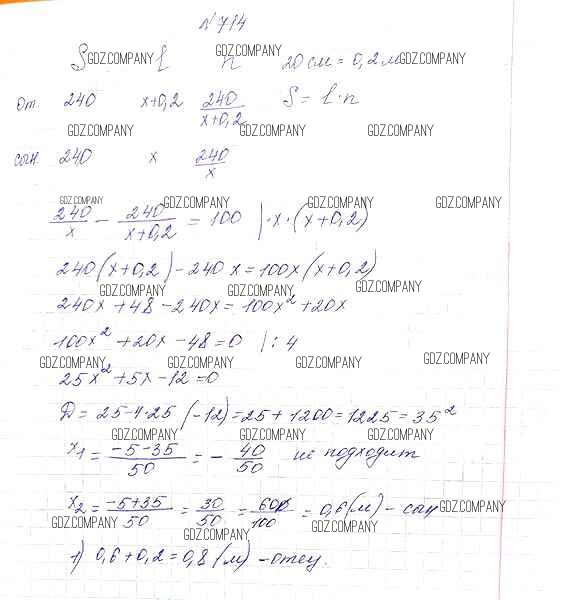 № 714
S GDZ.COMPANY l GDZ.COMPANY n 20 см = 0,2 м GDZ.COMPANY
От. 240 x+0,2 240/(x+0,2) S = l·n
GDZ.COMPANY GDZ.COMPANY GDZ.COMPANY
сын. 240 x 240/x
GDZ.COMPANY GDZ.COMPANY GDZ.COMPANY GDZ.COMPANY
240/x − 240/(x+0,2) = 100 |·x·(x+0,2)
240(x+0,2) − 240x = 100x(x+0,2)
GDZ.COMPANY GDZ.COMPANY GDZ.COMPANY
240x + 48 − 240x = 100x² + 20x
100x² + 20x − 48 = 0 |:4
GDZ.COMPANY GDZ.COMPANY GDZ.COMPANY GDZ.COMPANY
25x² + 5x − 12 = 0
Д = 25−4·25(−12) = 25 + 1200 = 1225 = 35²
GDZ.COMPANY GDZ.COMPANY GDZ.COMPANY
x₁ = (−5−35)/50 = − 40/50 не подходит
x₂ = (−5+35)/50 = 30/50 = 60/100 = 0,6 (м) − сын GDZ.COMPANY
GDZ.COMPANY GDZ.COMPANY GDZ.COMPANY
1) 0,6+0,2 = 0,8 (м) − отец.